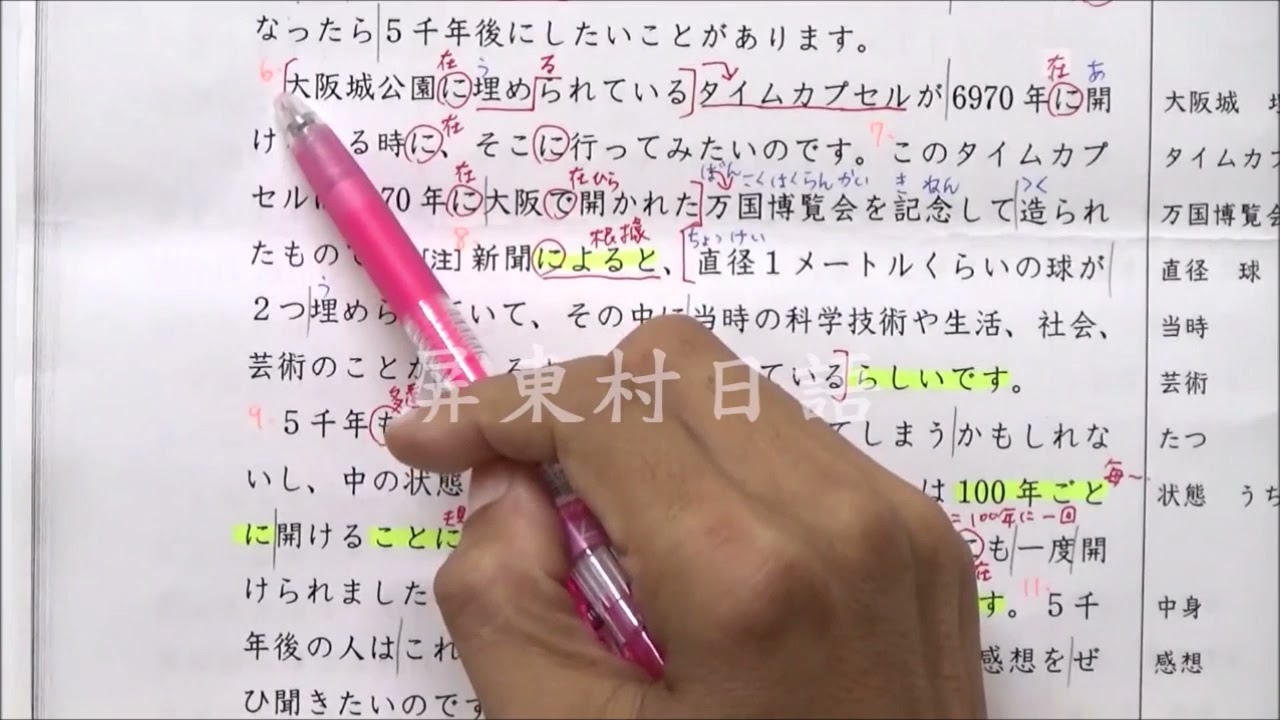 なったら5千年後にしたいことがあります。
大阪城公園に埋められているタイムカプセルが6970年に開
け る時に、そこに行ってみたいのです。このタイムカプ
セル 70年に大阪で開かれた万国博覧会を記念して造られ
たもので [注]新聞によると、直径1メートルくらいの球が
2つ埋めら いて、その中に当時の科学技術や生活、社会、
芸術のことが ているらしいです。
5千年も てしまうかもしれな
いし、中の状態 は100年ごと
に開けることに も一度開
けられました す。5千
年後の人はこれ 感想をぜ
ひ聞きたいのです
大阪城
タイムカプ
万国博覧会
直径 球
当時
芸術
たつ
状態 うち
中身
感想
6.
在
う
る
在
あ
7.
在
在
在ひら
ばん こくはくらん かい
き ねん
つく
8
根據
ちょっけい
う
9.
毎〜
100年に一回
在
11.
屏東村日語